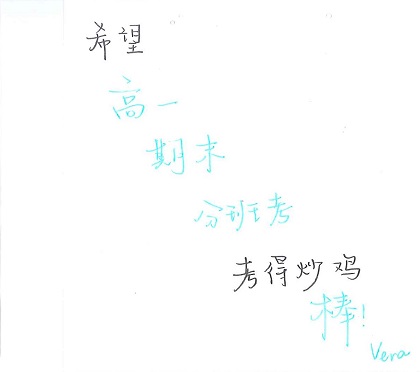 希望
高一
期末
分班考
考得炒鸡
棒!
Vera